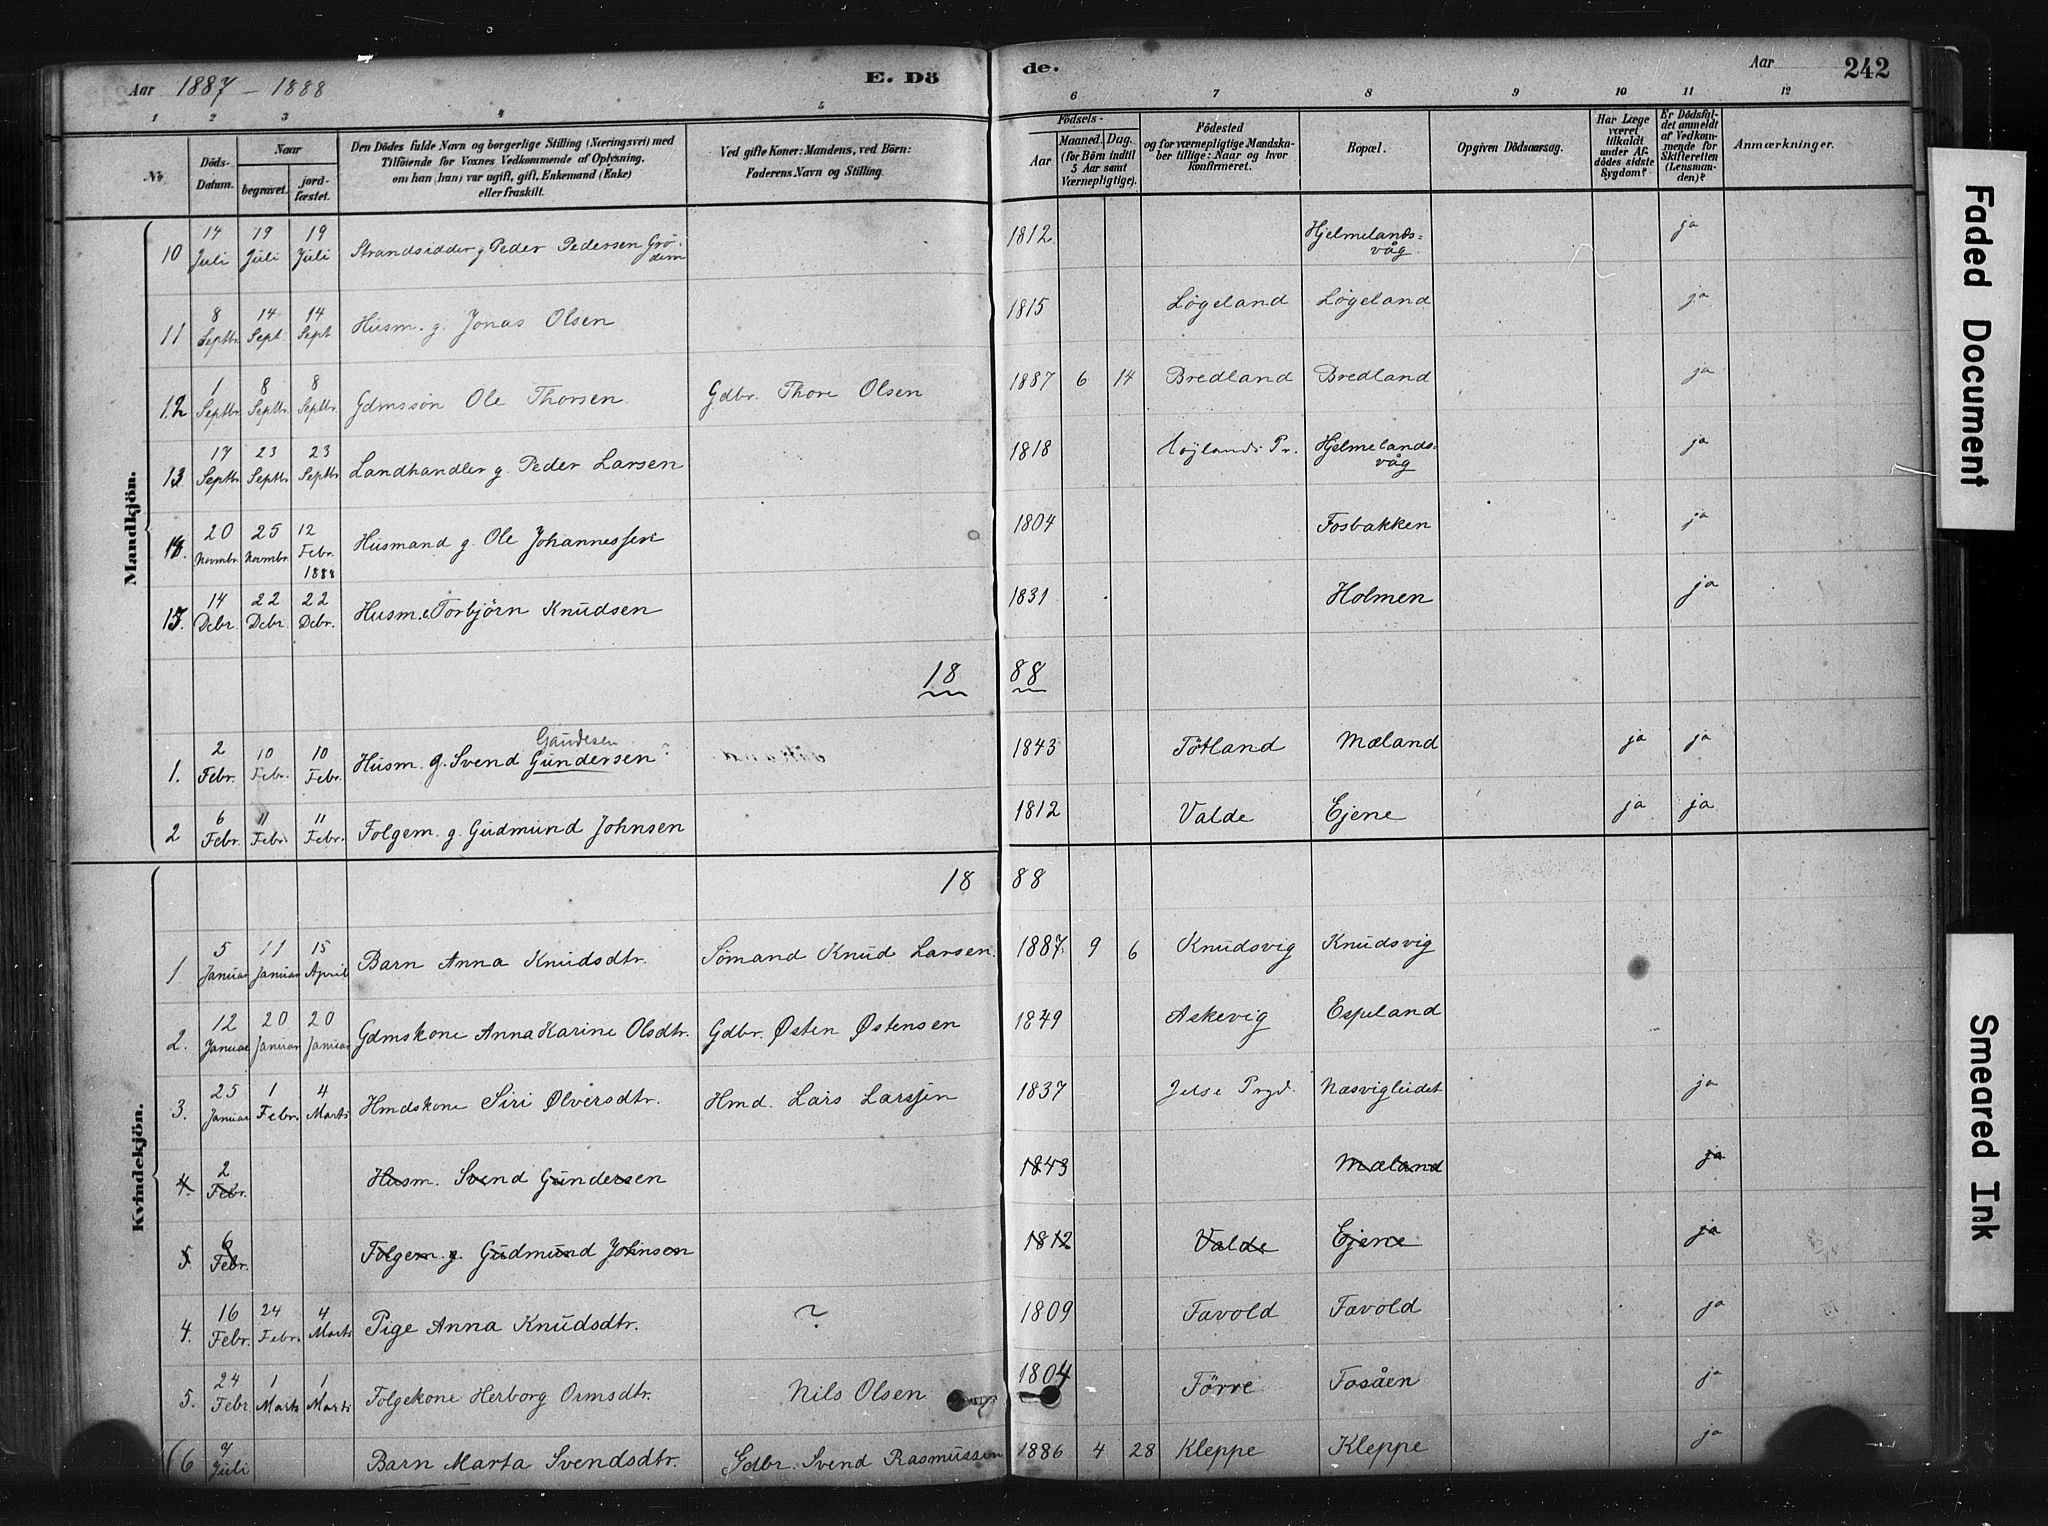 Aar 1887 - 1888 E. Dö de. Aar 242
1 2 3 4 5 6 7 8 9 10 11 12
No
Döds-Datum.
Naar
begravet.
jord-fæstet.
Den Dödes fulde Navn og borgerlige Stilling (Næringsvei) med
Tilföiende for Voxnes Vedkommende af Oplysning,
om han (hun) var ugift, gift, Enkemand (Enke)
eller fraskilt.
Ved gifte Koner: Mandens, ved Börn:
Faderens Navn og Stilling.
Födsels-
Aar
Maaned. Dag.
(for Börn indtil
5 Aar samt
Værnepligtige).
Födested
og for værnepligtige Mandska-
ber tillige: Naar og hvor
konfirmeret.
Bopæl.
Opgiven Dödsaarsag.
Har Læge
været
tilkaldt
under Af-
dödes sidste
Sygdom?
Er Dödsfal-
det anmeldt
af Vedkom-
mende for
Skifteretten
(Lensman-
den)?
Anmærkninger.
Mandkjön.
10 14 Juli 19 Juli 19 Juli Strandsidder g Peder Pedersen Grö-dem 1812 Hjelmelands-våg ja
11 8 Septbr. 14 Sept. 14 Sept Husm. g. Jonas Olsen 1815 Løgeland Løgeland ja
12 1 Septbr. 8 Septbr. 8 Septbr. Gdmssön Ole Thorsen Gdbr. Thore Olsen 1887 6 14 Bredland Bredland ja
13 17 Septbr 23 Septbr 23 Septbr Landhandler g. Peder Larsen 1818 Højlands Pr. Hjelmelands-våg ja
14. 20 Novmbr. 25 Novmbr. 12 Febr. 1888 Husmand g. Ole Johannessen 1804 Fosbakken ja
15. 14 Debr. 22 Debr. 22 Debr. Husm. e. Torbjörn Knudsen 1831 Holmen ja
18 88
1. 2 Febr. 10 Febr. 10 Febr. Husm. g. Svend Gundersen Gaudesen ? 1843 Tøtland Mæland ja ja
2 6 Febr. 11 Febr. 11 Febr. Folgem. g. Gudmund Johnsen 1812 Valde Ejene ja ja
Kvindekjön.
18 88
1 5 Januar 11 Januar 15 April Barn Anna Knudsdtr. Sømand Knud Larsen. 1887. 9 6 Knudsvig Knudsvig
2. 12 Januar 20 Januar 20 Januar Gdmskone Anna Karine Olsdtr. Gdbr. Østen Østensen 1849 Askevig Espeland
3. 25 Januar 1 Febr. 4 Marts Hmdskone Siri Ølversdtr. Hmd. Lars Larssen 1837 Jelse Prgd. Næsvigleidet ja
4. 2 Febr. Husm. Svend Gundersen 1843 Mæland ja
5 6 Febr. Folgem. g. Gudmund Johnsen 1812 Valde Ejene ja
4. 16 Febr. 24 Febr. 4 Marts Pige Anna Knudsdtr. ? 1809 Favold Favold ja
5. 24 Febr 1 Marts 1 Marts Folgekone Herborg Ormsdtr. Nils Olsen 1804 Førre Fosåen ja
6 7 Juli Barn Marta Svendsdtr. Gdbr. Svend Rasmussen 1886 4 28 Kleppe Kleppe ja
Faded Document
Smeared Ink